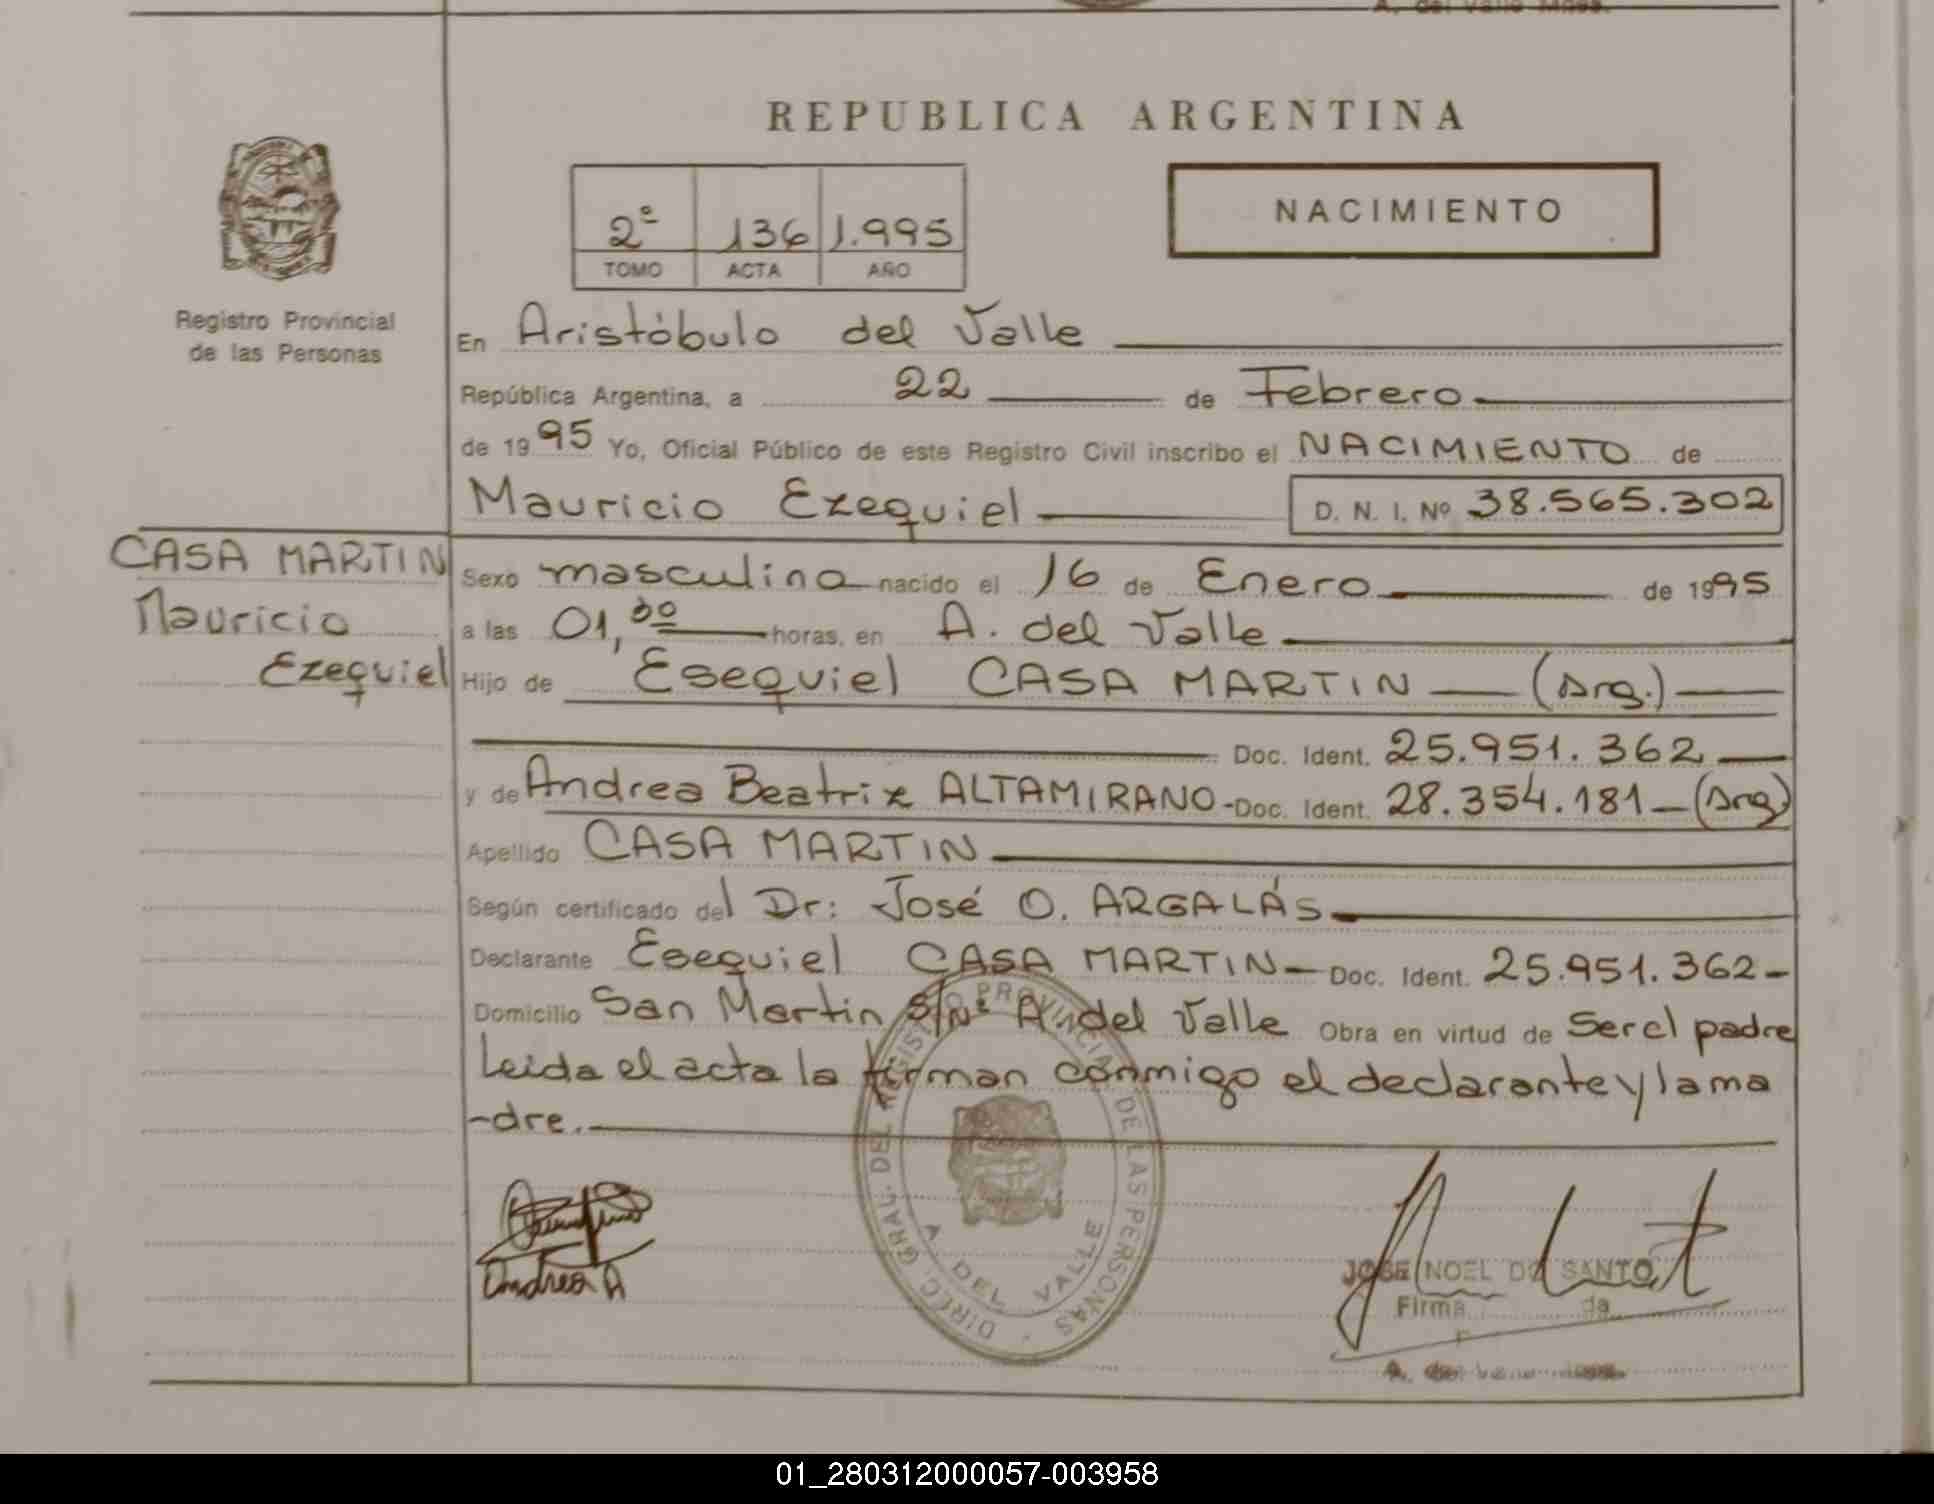 A. del Valle Mnes.
REPUBLICA ARGENTINA
NACIMIENTO
2º 136 1.995
TOMO ACTA AÑO
Registro Provincial
de las Personas
En Aristóbulo del Valle
República Argentina, a 22 de Febrero
de 1995 Yo, Oficial Público de este Registro Civil inscribo el NACIMIENTO de
Mauricio Ezequiel D. N. I. Nº 38.565.302
CASA MARTIN
Mauricio
Ezequiel
Sexo masculino nacido el 16 de Enero de 1995
a las 01,30 horas, en A. del Valle
Hijo de Esequiel CASA MARTIN (Arg.)
Doc. Ident. 25.951.362
y de Andrea Beatriz ALTAMIRANO - Doc. Ident. 28.354.181 (Arg)
Apellido CASA MARTIN
Según certificado del Dr: José O. ARGALÁS
Declarante Esequiel CASA MARTIN - Doc. Ident. 25.951.362 -
Domicilio San Martin s/Nº A. del Valle Obra en virtud de Ser el padre
Leida el acta la firman conmigo el declarante y la ma
-dre.
DIREC. GRAL. DEL REGISTRO PROVINCIAL DE LAS PERSONAS
A. DEL VALLE
Andrea A
JOSE NOEL DO SANTO
Firma da
01_280312000057-003958